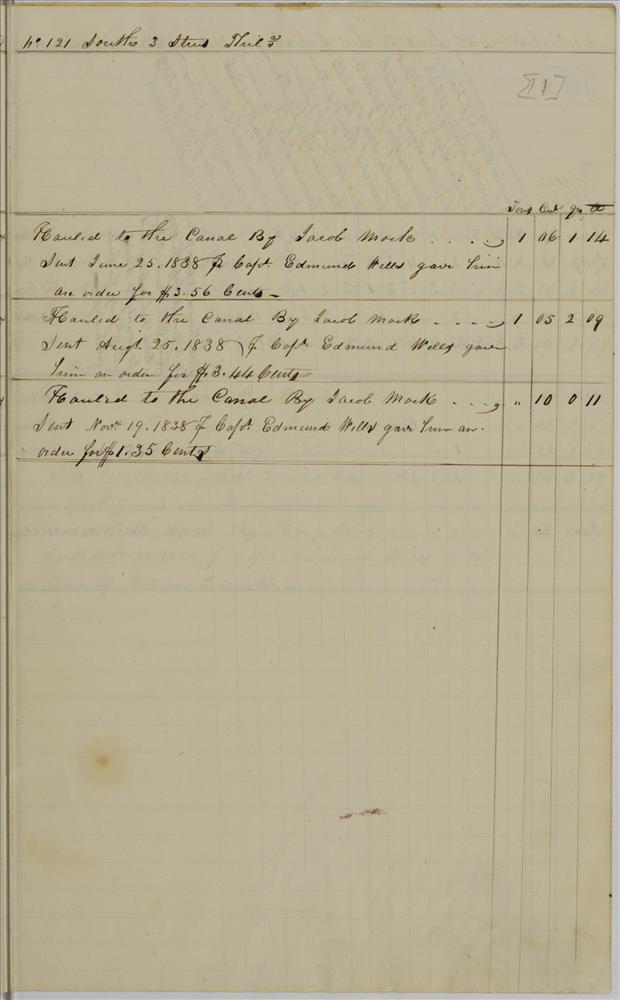 No 121 South 3 Street Phila
[11]
Tons Cwt Qr lb
Hauled to the Canal By Jacob Mock . . . . 1 06 1 14
Sent June 25. 1838 P Capt. Edmund Wells gave him
an order for $3.56 Cents
Hauled to the Canal By Jacob Mock . . . . 1 05 2 09
Sent Augt 25. 1838 P Capt Edmund Wells gave
him an order for $3.44 Cents
Hauled to the Canal By Jacob Mock . . . " 10 0 11
Sent Novr 19. 1838 P Capt. Edmund Wells gave him an
order for $1.35 Cents